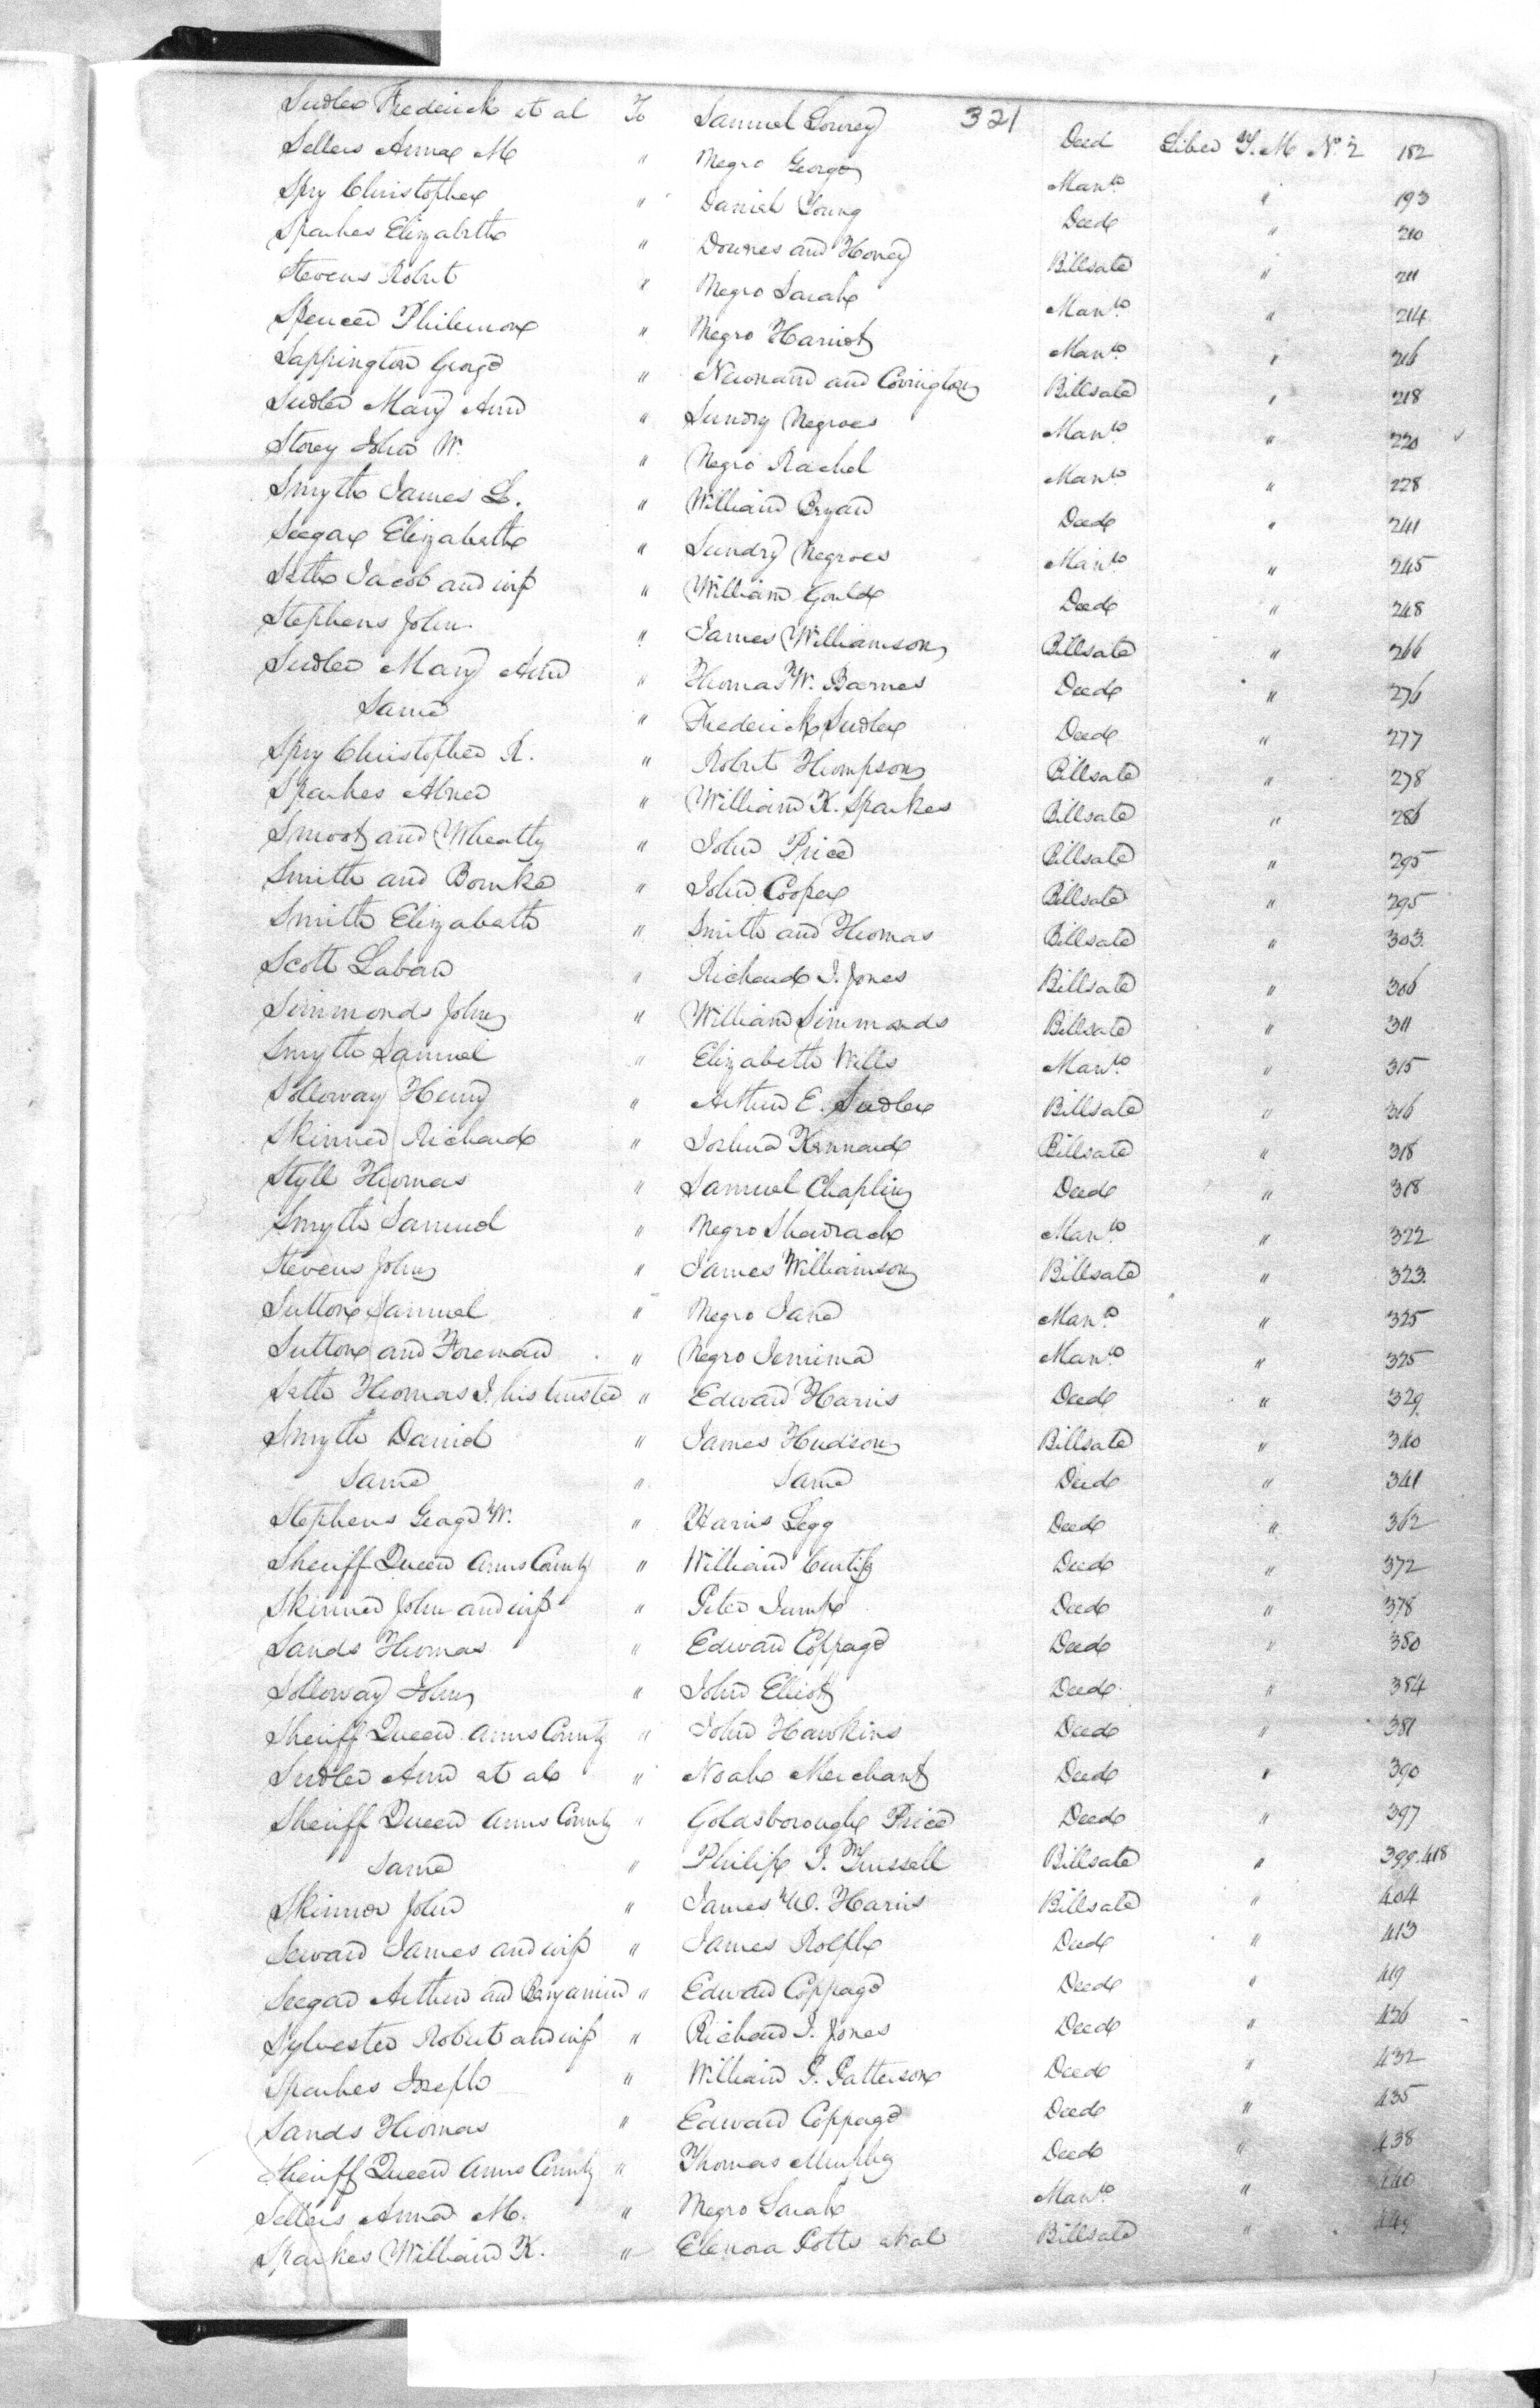 321
Sudler Frederick et al To Samuel Lowrey Deed Liber T. M No. 2 182
Sellers Anna M " Negro George Manto. " 193
Spry Christopher " Daniel Young Deed " 210
Sparkes Elizabeth " Downes and Honey Billsale " 211
Stevens Robert " Negro Sarah Manto. " 214
Spencer Philemon " Negro Harriot Manto. " 216
Sappington George " Newnam and Covington Billsale " 218
Sudler Mary Ann " Sundry Negroes Manto. " 220
Storey John W. " Negro Rachel Manto. " 228
Smyth James L. " William Bryan Deed " 241
Seegar Elizabeth " Sundry Negroes Manto. " 245
Seth Jacob and wife " William Gould Deed " 248
Stephens John " James Williamson Billsale " 266
Sudler Mary Ann " Thomas W. Barnes Deed " 276
Same " Frederick Sudler Deed " 277
Spry Christopher R. " Robert Thompson Billsale " 278
Sparkes Abner " William K. Sparkes Billsale " 286
Smoot and Wheatly " John Price Billsale " 295
Smith and Bourke " John Cooper Billsale " 295
Smith Elizabeth " Smith and Thomas Billsale " 303
Scott Laban " Richard I. Jones Billsale " 306
Simmonds John " William Simmonds Billsale " 311
Smyth Samuel " Elizabeth Wills Manto. " 315
Solloway Henry " Arthur E. Sudler Billsale " 316
Skinner Richard " Joshua Kennard Billsale " 318
Styll Thomas " Samuel Chaplin Deed " 318
Smyth Samuel " Negro Shadrach Manto. " 322
Stevens John " James Williamson Billsale " 323
Sutton Samuel " Negro Jane Manto. " 325
Sutton and Foreman " Negro Jemima Manto. " 325
Seth Thomas I. his trustee " Edward Harris Deed " 329
Smyth David " James Hudson Billsale " 340
Same " Same Deed " 341
Stephens George W. " Harris Legg Deed " 362
Sheriff Queen Anns County " William Curtis Deed " 372
Skinner John and wife " Peter Jump Deed " 378
Sands Thomas " Edward Coppage Deed " 380
Solloway John " John Elliott Deed " 384
Sheriff Queen Anns County " John Hawkins Deed " 381
Sudler Ann et al " Noah Merchant Deed " 390
Sheriff Queen Anns County " Goldsborough Price Deed " 397
Same " Philip I. Trussell Billsale " 399.418
Skinner John " James W. Harris Billsale " 404
Seward James and wife " James Rolph Deed " 413
Seegar Arthur and Benjamin " Edward Coppage Deed " 419
Sylvester Robert and wife " Richard I. Jones Deed " 426
Sparkes Joseph " William P. Patterson Deed " 432
Sands Thomas " Edward Coppage Deed " 435
Sheriff Queen Anns County " Thomas Murphy Deed " 438
Sellers Anna M. " Negro Sarah Manto. " 440
Sparkes William K. " Elenora Potts et al Billsale " 449